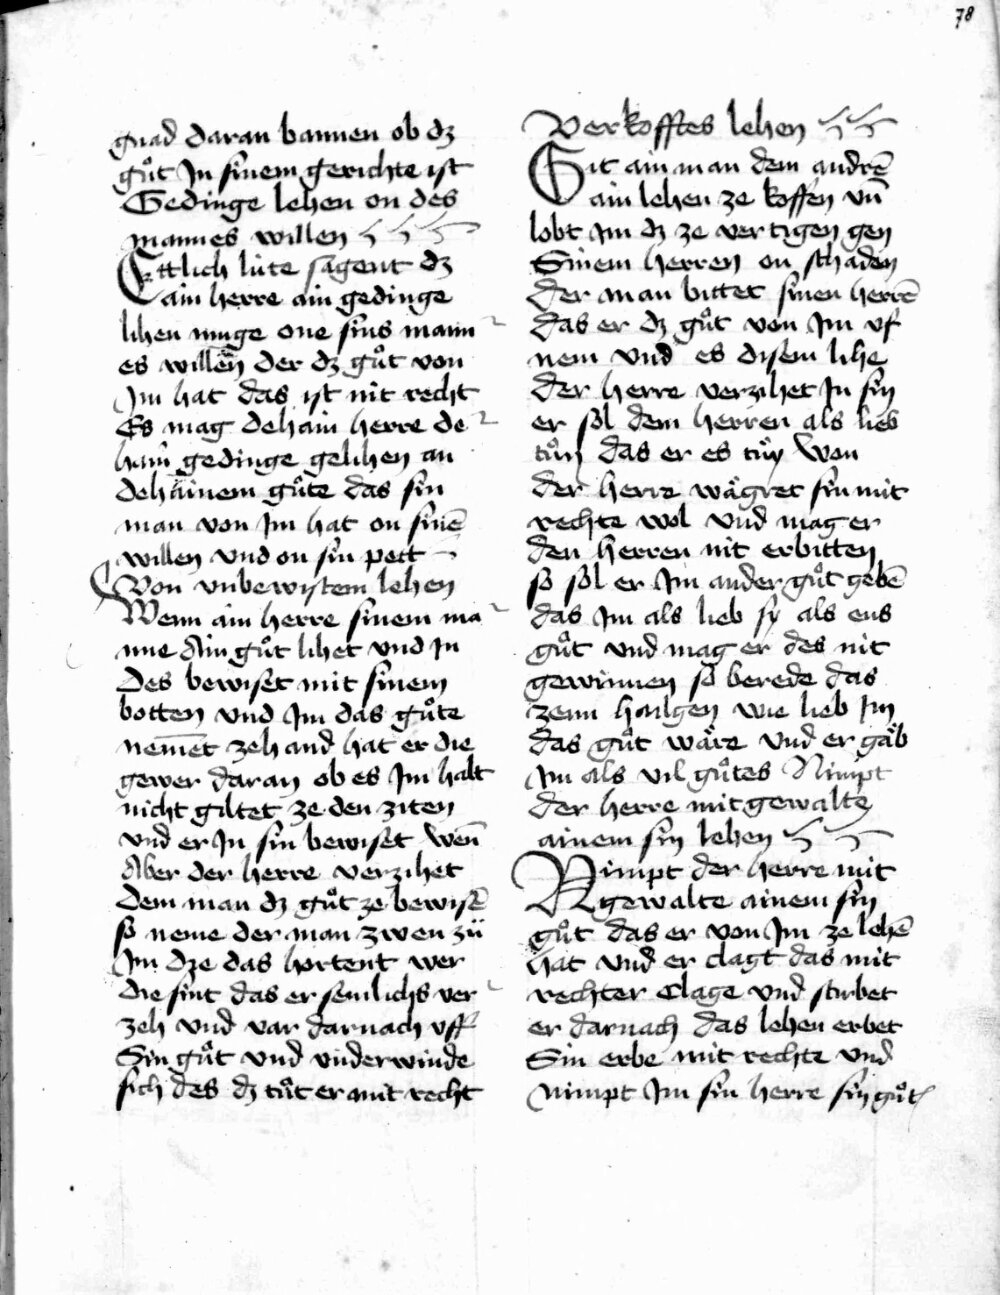 78
gnad daran bannen ob dz
gůt Jn sinem gerichte ist
Gedinge lehen on des
mannes willen
Ettlich lúte sagent dz
ain herre ain gedinge
lihen muge one sins mann
es willen der dz gůt von
Jm hat das ist nit recht
Es mag dehain herre de
hain gedinge gelihen an
dehainem gůte das sin
man von Jm hat on sinē
willen vnd on sin pett
Von vnbewistem lehen
Wenn ain herre sinem ma
nne Ain gůt lihet vnd Jn
Des bewiset mit sinem
botten vnd Jm das gůte
nem̄et zehand hat er die
gewer daran ob es Jm halt
nicht giltet ze den ziten
vnd er Jn sin bewiset Wen̄
Aber der herre verzihet
dem man dz gůt ze bewisē
so neme der man zwen zü
Jm dze das hortent wer
die sint das er semlichs ver
zeh vnd var darnach vff
Sin gůt vnd vnderwinde
sich des dz tůt er mit recht
Verkofftes lehen
Git ain man dem andrē
ain lehen ze koffen vn̄
lobt Jm dz ze vertigen gen
Sinem herren on schaden
der man bittet sinen herrē
das er dz gůt von Jm vf
nem vnd es disem lihe
der herre verzihet Jn sin
er sol dem herren als lieb
tůn das er es tüy Won
der herre wägret sin mit
rechte wol vnd mag er
den herren nit erbitten
so sol er Jm ander gůt gebē
das Jm als lieb sy als ens
gůt vnd mag er des nit
gewinnen so berede das
zenn hailgen wie lieb Jm
das gůt wäre vnd er gäb
Jm als vil gůtes Nimpt
der herre mit gewalte
ainem sin lehen
Nimpt der herre mit
gewalte ainem sin
gůt das er von Jm ze lehē
hat vnd er clagt das mit
rechter Clage vnd stirbet
er darnach das lehen erbet
Sin erbe mit rechte vnd
Nimpt Jm sin herre sin gůt